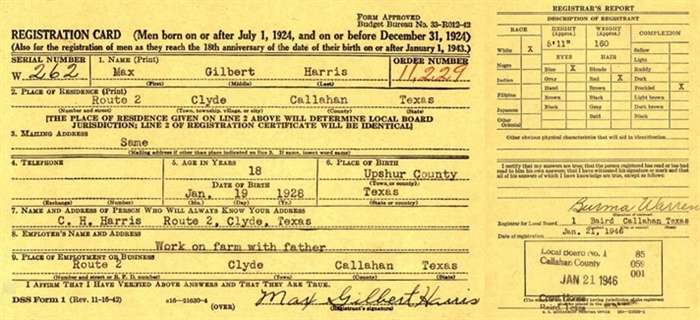 FORM APPROVED
Budget Bureau No. 33-R012-42
REGISTRATION CARD (Men born on or after July 1, 1924, and on or before December 31, 1924)
(Also for the registration of men as they reach the 18th anniversary of the date of their birth on or after January 1, 1943.)
SERIAL NUMBER 1. NAME (Print) ORDER NUMBER
W. 262 Max Gilbert Harris 11,229
(First) (Middle) (Last)
2. PLACE OF RESIDENCE (Print)
Route 2 Clyde Callahan Texas
(Number and street) (Town, township, village, or city) (County) (State)
[THE PLACE OF RESIDENCE GIVEN ON LINE 2 ABOVE WILL DETERMINE LOCAL BOARD
JURISDICTION; LINE 2 OF REGISTRATION CERTIFICATE WILL BE IDENTICAL]
3. MAILING ADDRESS
Same
(Mailing address if other than place indicated on line 2. If same, insert word same)
4. TELEPHONE 5. AGE IN YEARS 6. PLACE OF BIRTH
18 Upshur County
DATE OF BIRTH (Town or county)
Jan. 19 1928 Texas
(Exchange) (Number) (Mo.) (Day) (Yr.) (State or country)
7. NAME AND ADDRESS OF PERSON WHO WILL ALWAYS KNOW YOUR ADDRESS
C. H. Harris Route 2, Clyde, Texas
8. EMPLOYER'S NAME AND ADDRESS
Work on farm with father
9. PLACE OF EMPLOYMENT OR BUSINESS
Route 2 Clyde Callahan Texas
(Number and street or R. F. D. number) (Town) (County) (State)
I AFFIRM THAT I HAVE VERIFIED ABOVE ANSWERS AND THAT THEY ARE TRUE.
DSS Form 1 (Rev. 11-16-42) (OVER) Max Gilbert Harris
(Registrant's signature)
REGISTRAR'S REPORT
DESCRIPTION OF REGISTRANT
RACE HEIGHT (Approx.) WEIGHT (Approx.) COMPLEXION
5'11" 160
White X Sallow
EYES HAIR Light
Negro Ruddy
Blue X Blonde
Indian Gray Red X Dark
Hazel Brown Freckled X
Filipino
Brown Black Light brown
Japanese Black Gray Dark brown
Other Bald Black
Oriental
Other obvious physical characteristics that will aid in identification
I certify that my answers are true; that the person registered has read or has had
read to him his own answers; that I have witnessed his signature or mark and that
all of his answers of which I have knowledge are true, except as follows:
Burma Warren
Registrar for Local Board 1 Baird Callahan Texas
Date of registration Jan. 21, 1946
Local Board No. 1 85
Callahan County 059
JAN 21 1946 001
Court House
Baird Texas